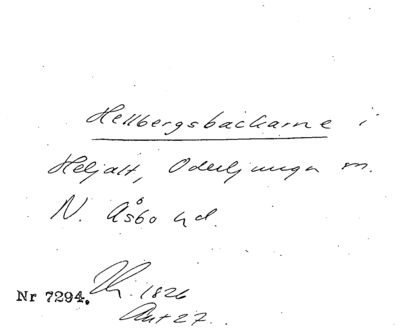 Hellbergsbackarne i
Heljalt, Oderljunga sn.
N. Åsbo hd.
Nr 7294. 1826
Akt 27.